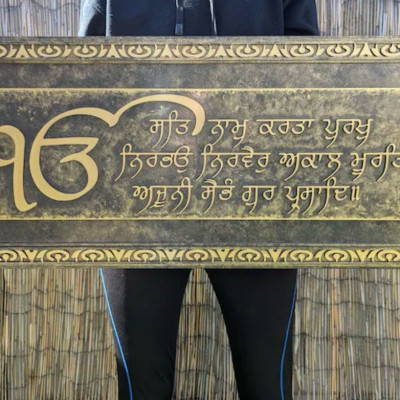 ੴ ਸਤਿ ਨਾਮੁ ਕਰਤਾ ਪੁਰਖੁ
ਨਿਰਭਉ ਨਿਰਵੈਰੁ ਅਕਾਲ ਮੂਰਤਿ
ਅਜੂਨੀ ਸੈਭੰ ਗੁਰ ਪ੍ਰਸਾਦਿ॥